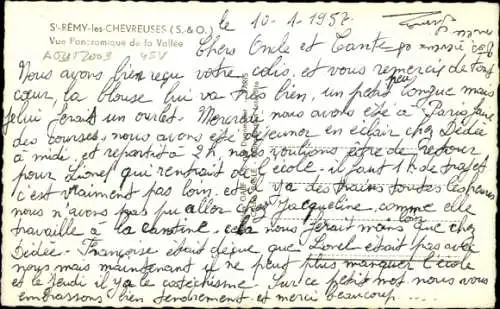 St-RÉMY-les-CHEVREUSES (S.&O.)
Vue Panoramique de la Vallée
le 10-1-1957.
Chers Oncle et Tante
Nous avons bien reçu votre colis, et vous remercis de tout
cœur, la blouse lui va très bien, un petit peu longue mais
je lui ferait un ourlet. Mercredi nous avons été à Paris faire
des courses, nous avons été déjeuner en éclair chez Dédée
à midi, et repartit à 2h, nous voulions être de retour
pour Lionel qui rentrait de l'école, il faut 1h de trajet
c'est vraiment pas loin, et il y a des trains toutes les heures
nous n'avons pas pu aller chez Jacqueline, comme elle
travaille à la cantine, cela nous ferait moins loin que chez
Dédée. Françoise était déçue, que Lionel était pas avec
nous mais maintenant il ne peut plus manquer l'école
et le Jeudi il y a le catéchisme. Sur ce petit mot nous vous
embrassons bien tendrement et merci beaucoup....